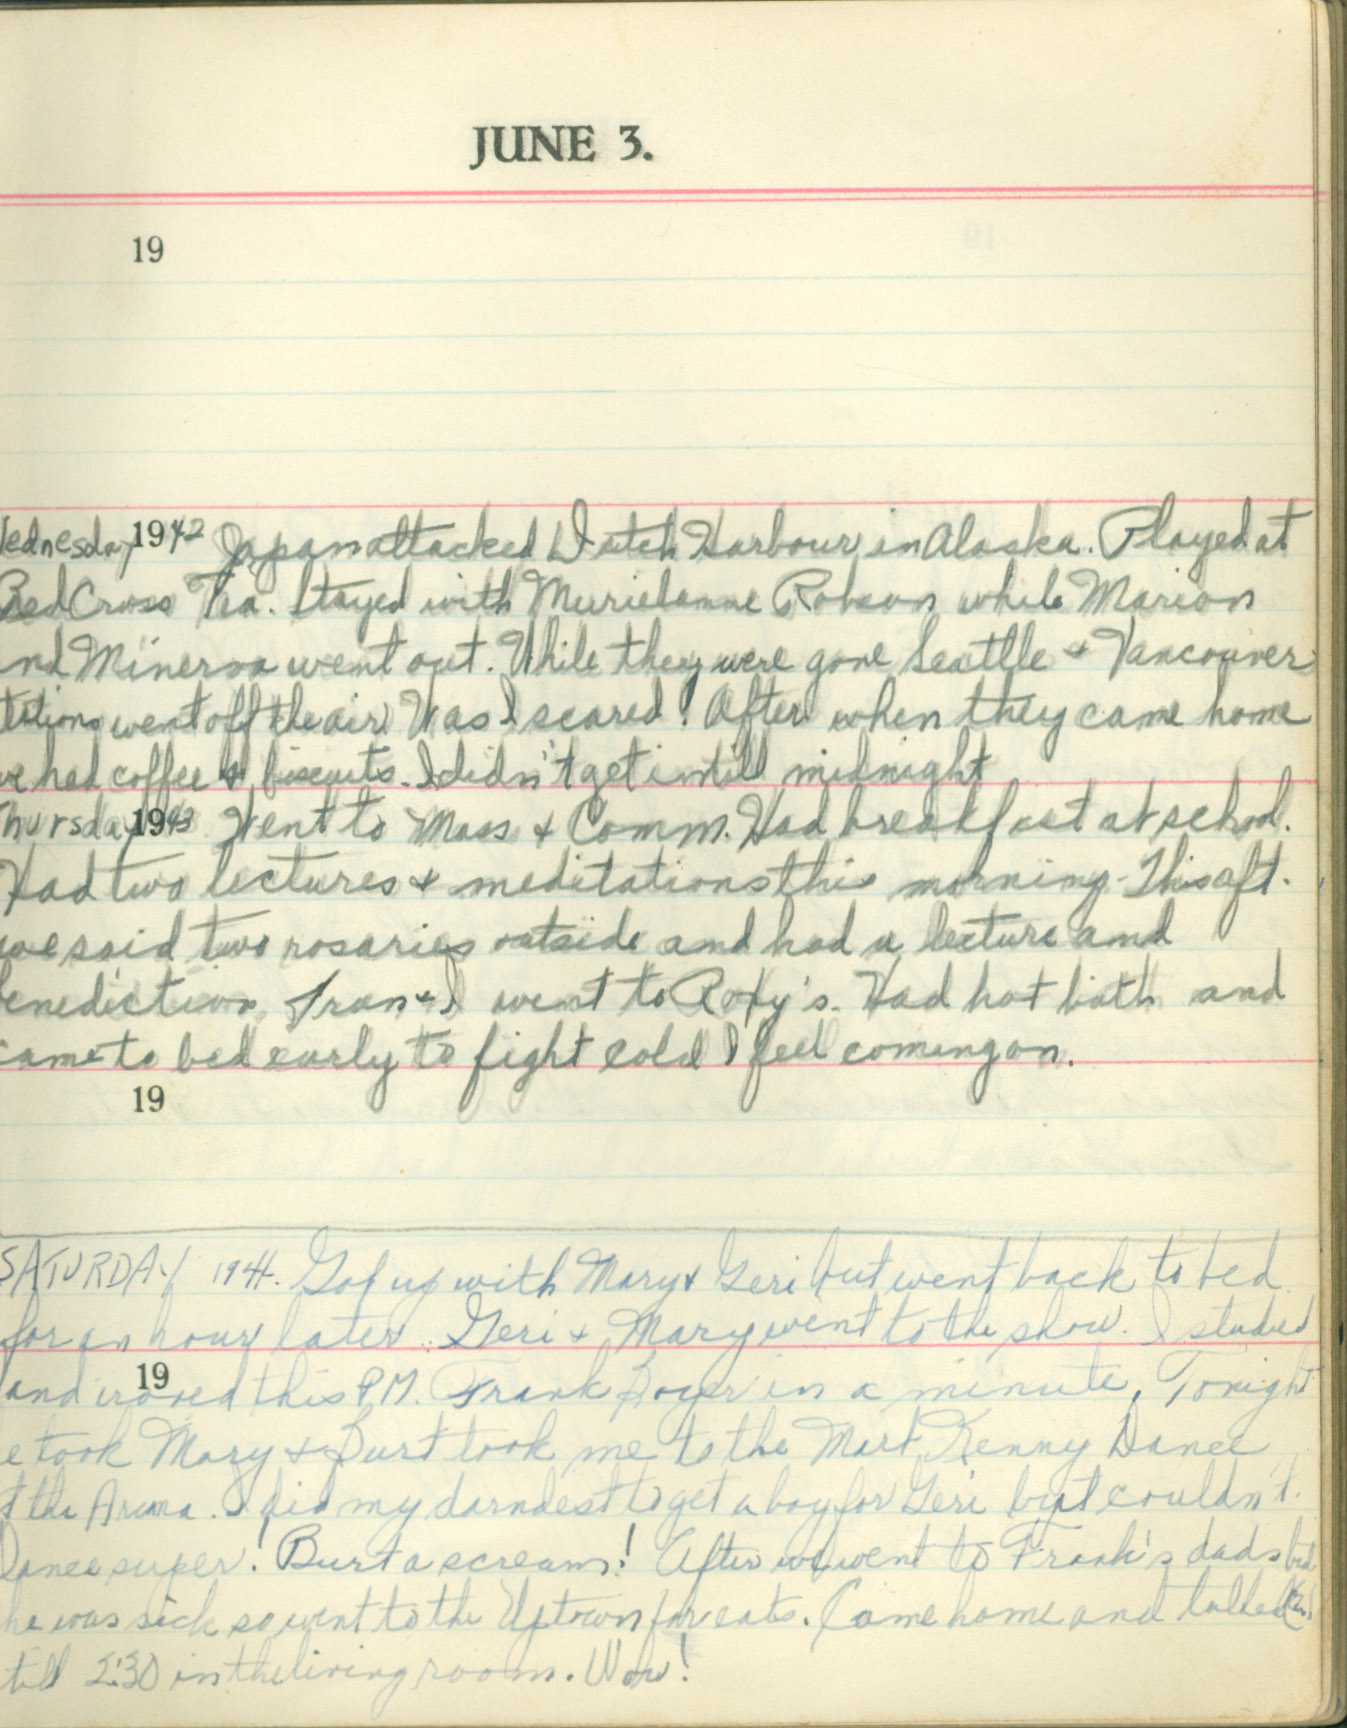 JUNE 3.
19
Wednesday 1942 Japan attacked Dutch Harbour in Alaska. Played at
Red Cross Tea. Stayed with Murielanne Robson while Marion
nd Minerva went out. While they were gone Seattle & Vancouver
tations went off the air. Was I scared! After when they came home
we had coffee & biscuits. I didn't get in till midnight
Thursday 1943 Went to Mass & Comm. Had breakfast at school.
Had two lectures & meditations this morning. This aft.
we said two rosaries outside and had a lecture and
benediction. Fran & I went to Roxy's. Had hot bath and
came to bed early to fight cold I feel coming on.
19
SATURDAY 1944. Got up with Mary & Geri but went back to bed
for an hour later. Geri & Mary went to the show. I studied
19
and ironed this P.M. Frank in a minute. Tonight
e took Mary & Burt took me to the Mart Kenny Dance
t the Arena. I did my darndest to get a boy for Geri but couldn't.
Dance super! Burt a scream! After we went to Frank's dads but
he was sick so went to the Uptown for eats. Came home and talked
till 2:30 in the living room. Wow!